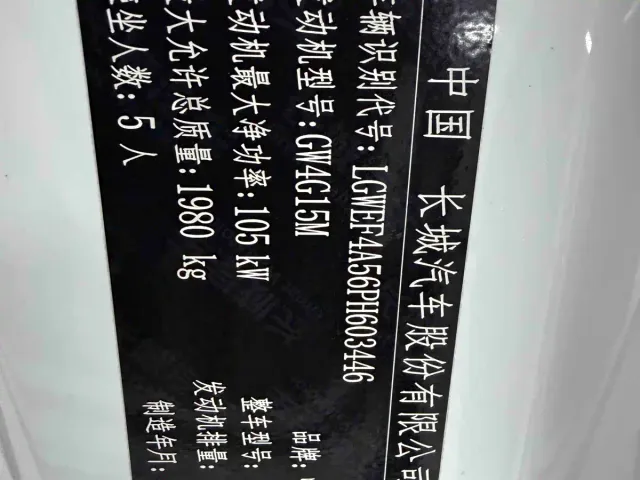 中国 长城汽车股份有限公司
车辆识别代号:LGWEF4A56PH603446
发动机型号:GW4G15M
品牌:
发动机最大净功率:105 kW
整车型号:
最大允许总质量:1980 kg
发动机排量:
座人数:5 人
制造年月: